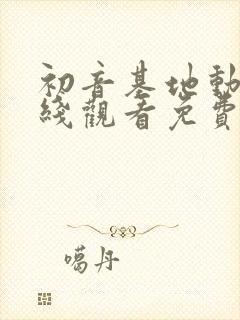 初音基地動
綫觀看免費
噶丹